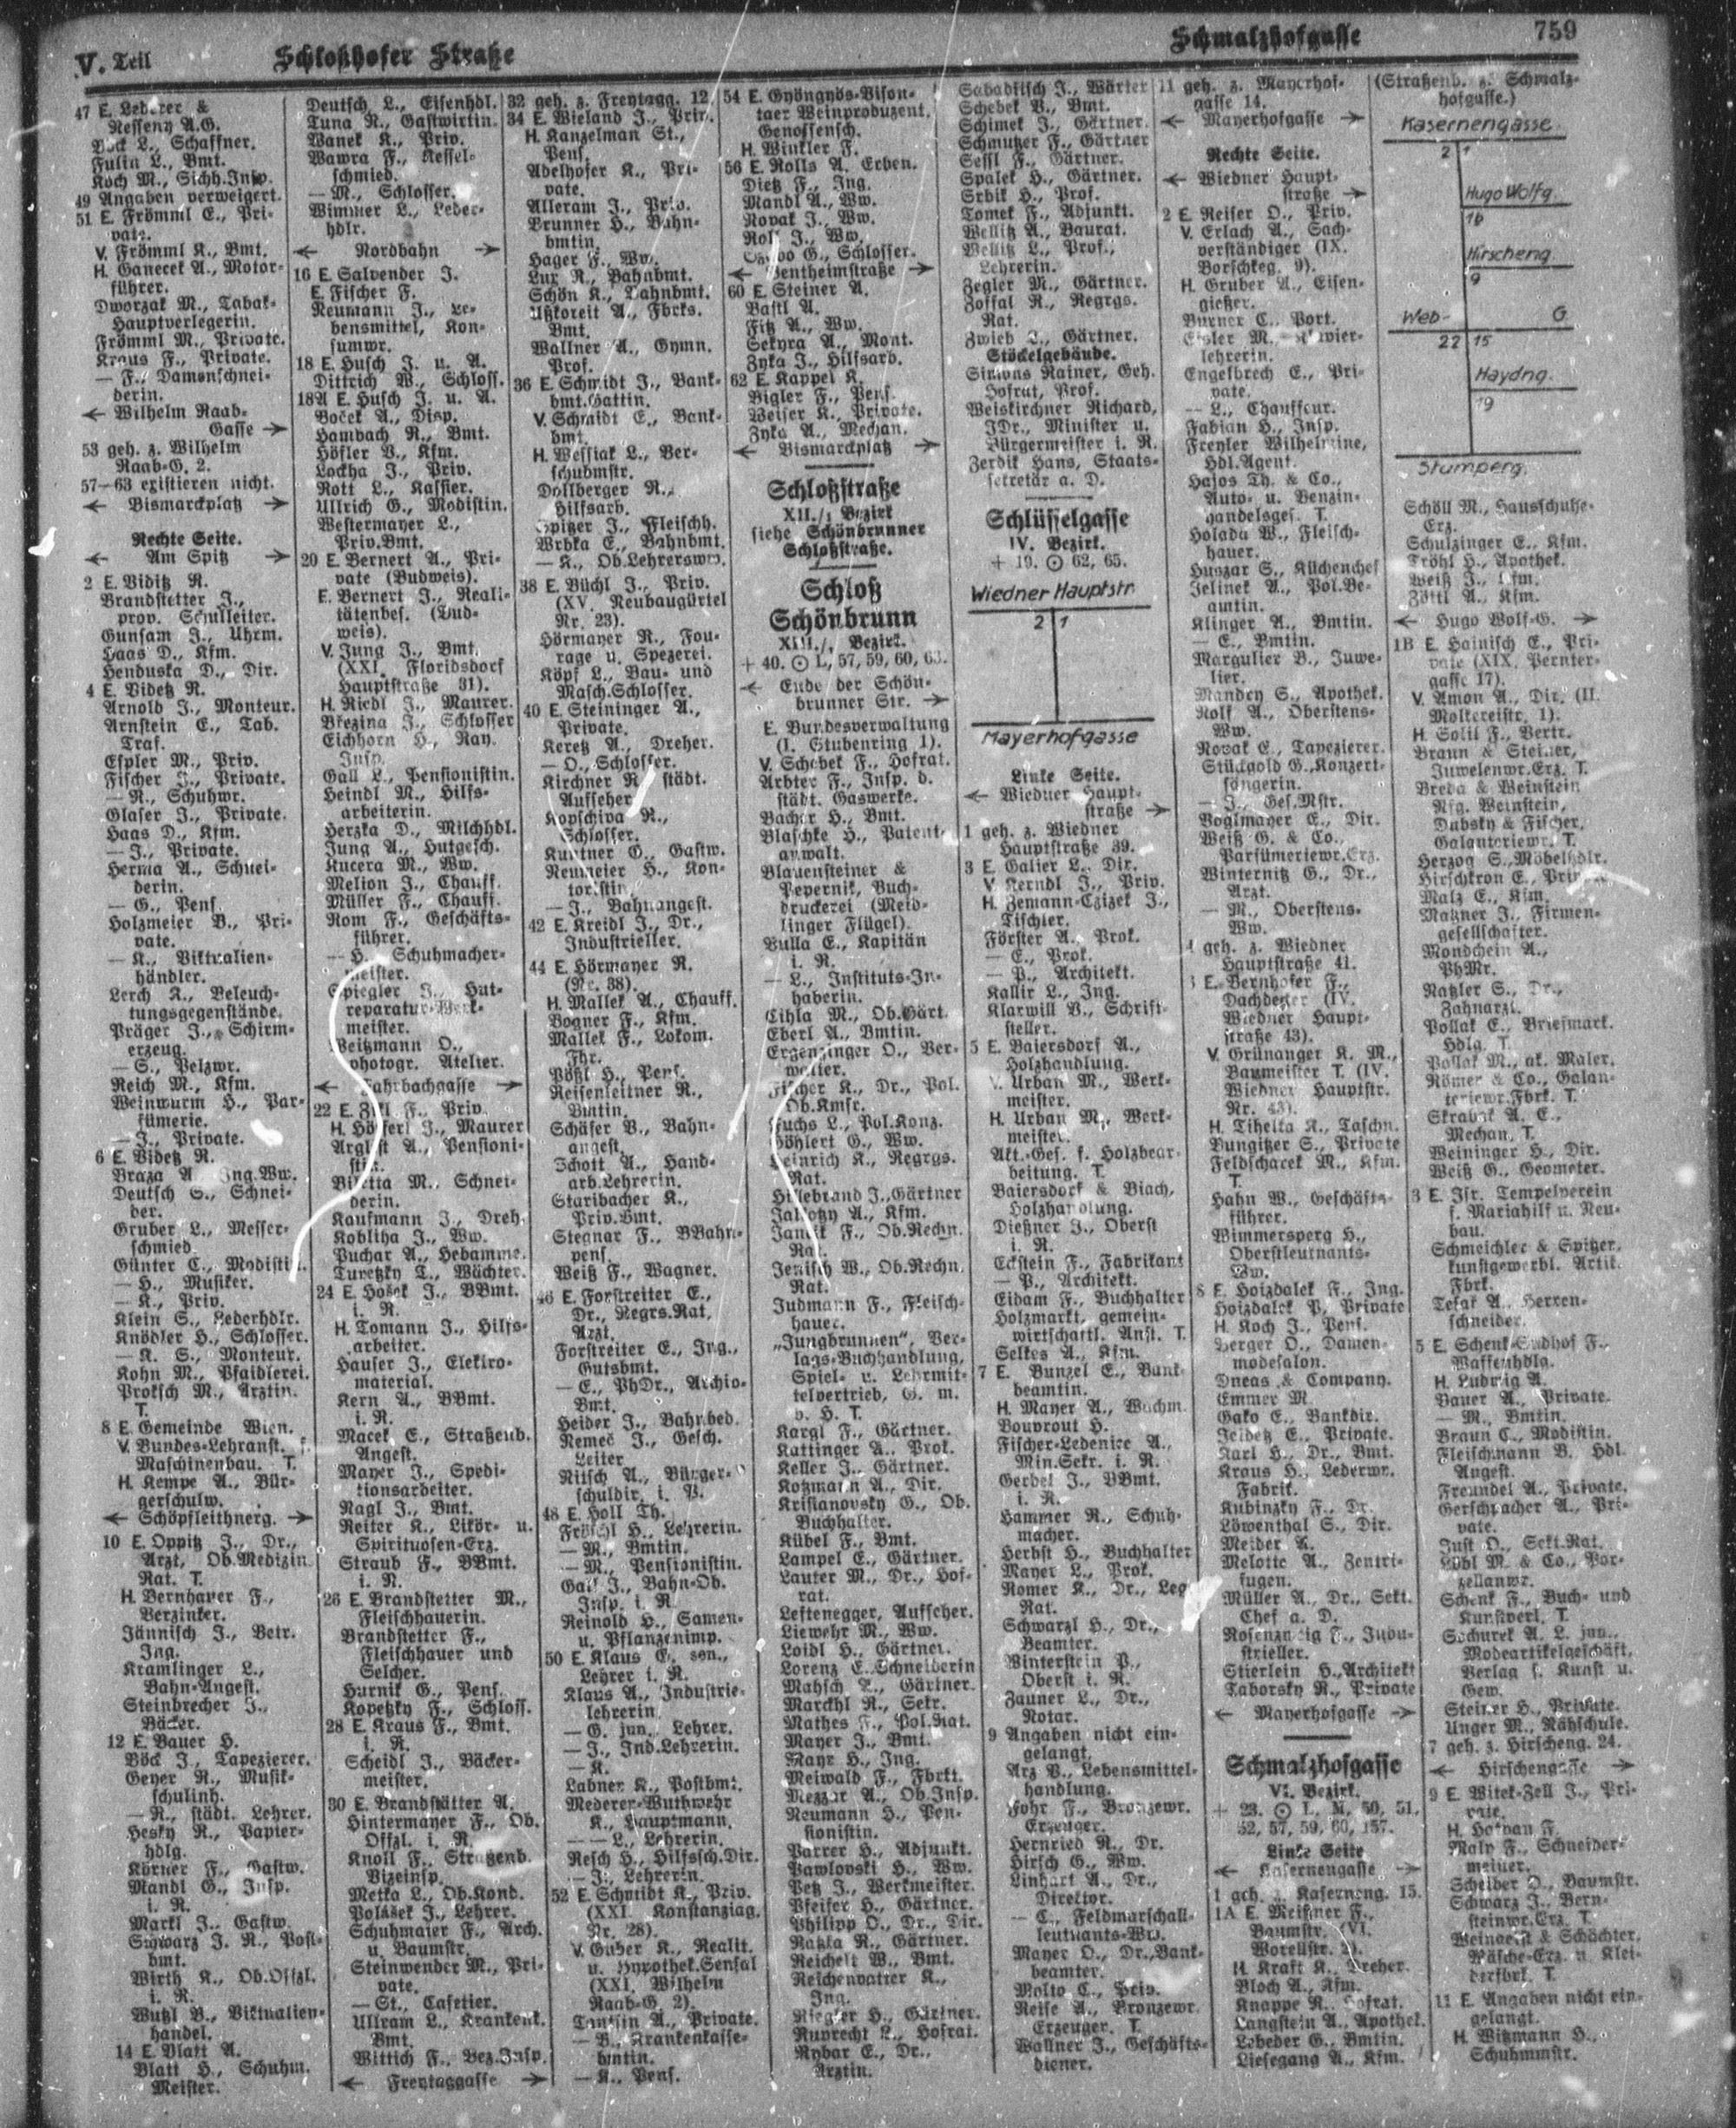 V. Teil
Schloßhofer Straße
Schmalzhofgasse
759
47 E. Lederer &
Nesseny A.G.
Böck L., Schaffner.
Fulin L., Bmt.
Koch M., Sichh.Insp.
49 Angaben verweigert.
51 E. Frömml E., Pri-
vate.
V. Frömml K., Bmt.
H. Ganecek A., Motor-
führer.
Dworzak M., Tabak-
Hauptverlegerin.
Frömml M., Private.
Kraus F., Private.
— F., Damenschnei-
derin.
← Wilhelm Raab-
Gasse →
53 geh. z. Wilhelm
Raab-G. 2.
57—63 existieren nicht.
← Bismarckplatz →
Rechte Seite.
← Am Spitz →
2 E. Videtz R.
Brandstetter J.,
prov. Schulleiter.
Gunsam J., Uhrm.
Haas D., Kfm.
Henduska D., Dir.
4 E. Videtz R.
Arnold J., Monteur.
Arnstein E., Tab.
Traf.
Espler M., Priv.
Fischer J., Private.
— R., Schuhwr.
Glaser J., Private.
Haas D., Kfm.
— J., Private.
Herma A., Schnei-
derin.
— G., Pens.
Holzmeier B., Pri-
vate.
— K., Viktualien-
händler.
Lerch K., Beleuch-
tungsgegenstände.
Präger J., Schirm-
erzeug.
— S., Pelzwr.
Reich M., Kfm.
Weinwurm H., Par-
fümerie.
— J., Private.
6 E. Videtz R.
Braza A., Ing.Ww.
Deutsch S., Schnei-
der.
Gruber L., Messer-
schmied.
Günter C., Modistin.
— H., Musiker.
— K., Priv.
Klein S., Lederhdlr.
Knödler H., Schlosser.
— K. S., Monteur.
Kohn M., Pfaidlerei.
Proksch M., Ärztin.
T.
8 E. Gemeinde Wien.
V. Bundes-Lehranst. f.
Maschinenbau. T.
H. Kempe A., Bür-
gerschulw.
← Schöpfleithnerg. →
10 E. Oppitz J., Dr.,
Arzt, Ob.Medizin.
Rat. T.
H. Bernhauer F.,
Verzinker.
Jännisch J., Betr.
Ing.
Kramlinger L.,
Bahn-Angest.
Steinbrecher J.,
Bäcker.
12 E. Bauer H.
Böck J., Tapezierer.
Geyer R., Musik-
schulinh.
— R., städt. Lehrer.
Hesky R., Papier-
hdlg.
Körner F., Gastw.
Mandl G., Insp.
i. R.
Markl J., Gastw.
Schwarz J. R., Post-
bmt.
Wirth K., Ob.Offzl.
i. R.
Wutzl B., Viktualien-
handel.
14 E. Blatt A.
Blatt H., Schuhm.
Meister.
Deutsch L., Eisenhdl.
Tuna R., Gastwirtin.
Wanek K., Priv.
Wawra F., Kessel-
schmied.
— M., Schlosser.
Wimmer L., Leder-
hdlr.
← Nordbahn →
16 E. Salvender J.
E. Fischer F.
Neumann J., Le-
bensmittel, Kon-
sumwr.
18 E. Husch J. u. A.
Dittrich W., Schloss.
18A E. Husch J. u. A.
Boček A., Disp.
Hambach R., Bmt.
Höfler V., Kfm.
Lockha J., Priv.
Rott L., Kassier.
Ullrich G., Modistin.
Westermayer L.,
Priv.Bmt.
20 E. Bernert A., Pri-
vate (Budweis).
E. Bernert J., Reali-
tätenbes. (Bud-
weis).
V. Jung J., Bmt.
(XXI. Floridsdorf
Hauptstraße 31).
H. Riedl J., Maurer.
Březina J., Schlosser
Eichhorn H., Kay.
Insp.
Gall L., Pensionistin.
Heindl M., Hilfs-
arbeiterin.
Herzka D., Milchhdl.
Jung A., Hutgesch.
Kucera M., Ww.
Melion J., Chauff.
Müller F., Chauff.
Rom F., Geschäfts-
führer.
— H., Schuhmacher-
meister.
Spiegler J., Hut-
reparatur-Werk-
meister.
Weitzmann O.,
photogr. Atelier.
← Fahrbachgasse →
22 E. Zykl F., Priv.
H. Höfferl J., Maurer
Arglst A., Pensioni-
stin.
M., Schnei-
derin.
Kaufmann J., Dreh.
Kobliha J., Ww.
Puchar A., Hebamme.
Turetzky T., Wächter.
24 E. Hošek J., BBmt.
i. R.
H. Tomann J., Hilfs-
arbeiter.
Hauser J., Elektro-
material.
Kern A., BBmt.
i. R.
Macek E., Straßenb.
Angest.
Mayer J., Spedi-
tionsarbeiter.
Nagl J., Bmt.
Reiter K., Likör- u.
Spirituosen-Erz.
Straub F., BBmt.
i. R.
26 E. Brandstetter M.,
Fleischhauerin.
Brandstetter F.,
Fleischhauer und
Selcher.
Hurnik G., Pens.
Kopetzky F., Schloss.
28 E. Kraus F., Bmt.
i. R.
Scheidl J., Bäcker-
meister.
30 E. Brandstätter A.
Hintermayer F., Ob.
Offzl. i. R.
Knoll F., Straßenb.
Vizeinsp.
Metka L., Ob.Kond.
Polášek J., Lehrer.
Schuhmaier F., Arch.
u. Baumstr.
Steinwender M., Pri-
vate.
— St., Cafetier.
Ullram L., Krankenk.
Bmt.
Wittich F., Bez.Insp.
← Freytaggasse →
32 geh. z. Freytagg. 12
34 E. Wieland J., Priv.
H. Kanzelman St.,
Pens.
Adelhofer K., Pri-
vate.
Alleram J., Priv.
Brunner H., Bahn-
bmtin.
Hager F., Ww.
Lux R., Bahnbmt.
Schön K., Bahnbmt.
Ußkoreit A., Fbrks.
Bmt.
Wallner A., Gymn.
Prof.
36 E. Schmidt J., Bank-
bmt.Gattin.
V. Schmidt E., Bank-
bmt.
H. Wessiak L., Ver-
schubmstr.
Dollberger R.,
Hilfsarb.
Spitzer J., Fleischh.
Wrbka E., Bahnbmt.
— K., Ob.Lehrersww.
38 E. Büchl J., Priv.
(XV. Neubaugürtel
Nr. 23).
Hörmayer R., Fou-
rage u. Spezerei.
Köpf L., Bau- und
Masch.Schlosser.
40 E. Steininger A.,
Private.
Keretz A., Dreher.
— O., Schlosser.
Kirchner R., städt.
Aufseher.
Kopschiva R.,
Schlosser.
Kuntner G., Gastw.
Neumeier H., Kon-
toristin.
— J., Bahnangest.
42 E. Kreidl J., Dr.,
Industrieller.
44 E. Hörmayer R.
(Nr. 38).
H. Mallek A., Chauff.
Bogner F., Kfm.
Mallek F., Lokom.
Fhr.
Pößl H., Pens.
Reisenleitner R.,
Bmtin.
Schäfer B., Bahn-
angest.
Schott A., Hand-
arb.Lehrerin.
Staribacher K.,
Priv.Bmt.
Stegnar F., BBahn-
pens.
Weiß F., Wagner.
46 E. Forstreiter E.,
Dr., Regrs.Rat,
Arzt.
Forstreiter E., Ing.,
Gutsbmt.
— E., PhDr., Archiv-
Bmt.
Heider J., Bahnbed.
Nemec J., Gesch.
Leiter
Nitsch A., Bürger-
schuldir. i. P.
48 E. Holl Th.
Fröschl H., Lehrerin.
— M., Bmtin.
— M., Pensionistin.
Gail J., Bahn-Ob.
Insp. i. R.
Reinold H., Samen-
u. Pflanzenimp.
50 E. Klaus E. sen.,
Lehrer i. R.
Klaus A., Industrie-
lehrerin.
— G. jun., Lehrer.
— J., Ind.Lehrerin.
— K.
Labner K., Postbmt.
Mederer-Wuthwehr
K., Hauptmann.
— — L., Lehrerin.
Resch H., Hilfssch.Dir.
— J., Lehrerin.
52 E. Schmidt K., Priv.
(XXI. Konstanziag.
Nr. 28).
V. Guber K., Realit.
u. Hypothek.Sensal
(XXI. Wilhelm
Raab-G. 2).
A., Private.
— B., Krankenkasse-
bmtin.
— K., Pens.
54 E. Gyöngyös-Vison-
taer Weinproduzent.
Genossensch.
H. Winkler F.
56 E. Rolls A. Erben.
Dietz F., Ing.
Mandl A., Ww.
Novak J., Ww.
Roll J., Ww.
G., Schlosser.
← Bentheimstraße →
60 E. Steiner A.
Bastl A.
Fitz A., Ww.
Sekyra A., Mont.
Zyka J., Hilfsarb.
62 E. Kappel K.
Bigler F., Pens.
Weiser K., Private.
Zyka A., Mechan.
← Bismarckplatz →
Schloßstraße
XII./1 Bezirk
siehe Schönbrunner
Schloßstraße.
Schloß
Schönbrunn
XIII./1 Bezirk.
+ 40. ⊙ L, 57, 59, 60, 63.
← Ende der Schön-
brunner Str. →
E. Bundesverwaltung
(I. Stubenring 1).
V. Schebek F., Hofrat.
Arbter F., Insp. d.
städt. Gaswerke.
Bacher H., Bmt.
Blaschke H., Patent-
anwalt.
Blauensteiner &
Pepernik, Buch-
druckerei (Meid-
linger Flügel).
Bulla E., Kapitän
i. R.
— L., Instituts-In-
haberin.
Cihla M., Ob.Gärt.
Eberl A., Bmtin.
Ergenzinger O., Ver-
walter.
Fischer K., Dr., Pol.
Ob.Kmsr.
Fuchs L., Pol.Konz.
Göhlert G., Ww.
Heinrich K., Regrgs.
Rat.
Hillebrand J., Gärtner
A., Kfm.
Janeik F., Ob.Rechn.
Rat.
Jenisch W., Ob.Rechn.
Rat.
Judmann F., Fleisch-
hauer.
„Jungbrunnen“, Ver-
lags-Buchhandlung,
Spiel- u. Lehrmit-
telvertrieb, G. m.
b. H. T.
Kargl F., Gärtner.
Kattinger A., Prok.
Keller J., Gärtner.
Kotzmann A., Dir.
Kristianovsky G., Ob.
Buchhalter.
Kübel F., Bmt.
Lampel E., Gärtner.
Lauter M., Dr., Hof-
rat.
Leftenegger, Aufseher.
Liewehr M., Ww.
Loidl H., Gärtner.
Lorenz E., Schneiderin
Mahsch T., Gärtner.
Marckhl R., Sekr.
Mathes F., Pol.Rat.
Mayer J., Bmt.
Mayr H., Ing.
Meiwald F., Fbrkt.
Mezzar A., Ob.Insp.
Neumann H., Pen-
sionistin.
Parrer H., Adjunkt.
Pawlovski H., Ww.
Petz J., Werkmeister.
Pfeifer H., Gärtner.
Philipp O., Dr., Dir.
Ratzka R., Gärtner.
Reichelt W., Bmt.
Reichenvatter K.,
Ing.
Riegler H., Gärtner.
Ruprecht L., Hofrat.
Rybar E., Dr.,
Ärztin.
Sabaditsch J., Wärter
Schebek V., Bmt.
Schimek J., Gärtner.
Schmutzer F., Gärtner
Sessl F., Gärtner.
Spalek H., Gärtner.
Srbik H., Prof.
Tomek F., Adjunkt.
Wellitz A., Baurat.
Wellitz L., Prof.,
Lehrerin.
Zegler M., Gärtner.
Zoffal R., Regrgs.
Rat.
Zwieb L., Gärtner.
Stöckelgebäude.
Simons Rainer, Geh.
Hofrat, Prof.
Weiskirchner Richard,
JDr., Minister u.
Bürgermeister i. R.
Zerdik Hans, Staats-
sekretär a. D.
Schlüsselgasse
IV. Bezirk.
+ 19. ⊙ 62, 65.
Wiedner Hauptstr.
2 1
Mayerhofgasse
Linke Seite.
← Wiedner Haupt-
straße →
1 geh. z. Wiedner
Hauptstraße 39.
3 E. Galier L., Dir.
V. Kerndl J., Priv.
H. Zemann-Czizek J.,
Tischler.
Förster A., Prok.
— E., Prok.
— P., Architekt.
Kallir L., Ing.
Klarwill V., Schrift-
steller.
5 E. Baiersdorf A.,
Holzhandlung.
V. Urban M., Werk-
meister.
H. Urban M., Werk-
meister.
Akt.-Ges. f. Holzbear-
beitung. T.
Baiersdorf & Biach,
Holzhandlung.
Dießner J., Oberst
i. R.
Eckstein F., Fabrikant
— P., Architekt.
Eidam F., Buchhalter
Holzmarkt, gemein-
wirtschaftl. Anst. T.
Selkes A., Kfm.
7 E. Bunzel E., Bank-
beamtin.
H. Mayer A., Wachm.
Bouvrout H.
Fischer-Ledenice A.,
Min.Sekr. i. R.
Gerbel J., BBmt.
i. R.
Hammer R., Schuh-
macher.
Herbst H., Buchhalter
Mayer L., Prok.
Romer K., Dr., Leg.
Rat.
Schwarzl H., Dr.,
Beamter.
Winterstein P.,
Oberst i. R.
Zauner L., Dr.,
Notar.
9 Angaben nicht ein-
gelangt.
Arz P., Lebensmittel-
handlung.
Fohr F., Bronzewr.
Erzeuger.
Hernried R., Dr.
Hirsch G., Ww.
Linhart A., Dr.,
Direktor.
— C., Feldmarschall-
leutnants-Ww.
Mayer O., Dr., Bank-
beamter.
Molto C., Priv.
Reise A., Bronzewr.
Erzeuger. T.
Wallner J., Geschäfts-
diener.
11 geh. z. Mayerhof-
gasse 14.
← Mayerhofgasse →
Rechte Seite.
← Wiedner Haupt-
straße →
2 E. Reiser O., Priv.
V. Erlach A., Sach-
verständiger (IX.
Borschkeg. 9).
H. Gruber A., Eisen-
gießer.
Burner C., Port.
Eisler M., Klavier-
lehrerin.
Engelbrech E., Pri-
vate.
— L., Chauffeur.
Fabian H., Insp.
Freyler Wilhelmine,
Hdl.Agent.
Hajos Th. & Co.,
Auto- u. Benzin-
handelsges. T.
Holada W., Fleisch-
hauer.
Huszar S., Küchenchef
Jelinek A., Pol.Be-
amtin.
Klinger A., Bmtin.
— E., Bmtin.
Margulier B., Juwe-
lier.
Mandey S., Apothek.
Rolf A., Oberstens-
Ww.
Novak E., Tapezierer.
Stückgold G., Konzert-
sängerin.
— J., Ges.Mstr.
Voglmayer E., Dir.
Weiß G. & Co.,
Parfümeriewr.Erz.
Winternitz G., Dr.,
Arzt.
— M., Oberstens-
Ww.
4 geh. z. Wiedner
Hauptstraße 41.
E. Bernhofer F.,
Dachdecker (IV.
Wiedner Haupt-
straße 43).
V. Grünanger K. M.,
Baumeister T. (IV.
Wiedner Hauptstr.
Nr. 43).
H. Tihelka K., Taschn.
Bungitzer S., Private
Feldschacek M., Kfm.
T.
Hahn W., Geschäfts-
führer.
Wimmersperg H.,
Oberstleutnants-
Ww.
8 E. Hoizdalek F., Ing.
Hoizdalek P., Private
H. Koch J., Pens.
Berger O., Damen-
modesalon.
Dneas & Company.
Emmer M.
Gako E., Bankdir.
Jeidetz E., Private.
Karl H., Dr., Bmt.
Kraus H., Lederwr.
Fabrik.
Kubinzky F., Dr.
Löwenthal S., Dir.
Meider K.
Melotte A., Zentri-
fugen.
Müller A., Dr., Sekt.
Chef a. D.
Rosenzweig F., Indu-
strieller.
Stierlein H., Architekt
Taborsky R., Private
← Mayerhofgasse →
Schmalzhofgasse
VI. Bezirk.
+ 23. ⊙ L, M, 50, 51,
52, 57, 59, 60, 157.
Linke Seite
← Kasernengasse →
1 geh. z. Kaserneng. 15.
1A E. Meißner F.,
Baumstr. (VI.
Worellstr. 2).
H. Kraft K., Dreher.
Bloch A., Kfm.
Knappe R., Hofrat.
Langstein A., Apothek.
Lebeder G., Bmtin.
Liesegang A., Kfm.
(Straßenb. z. Schmalz-
hofgasse.)
Kasernengasse
2 1
Hugo Wolfg.
1b
Hirscheng.
9
Web- G.
22 15
Haydng.
19
Stumperg.
Schöll M., Hausschuhe-
Erz.
Schulzinger E., Kfm.
Tröhl H., Apothek.
Weiß J., Kfm.
Zöttl A., Kfm.
← Hugo Wolf-G. →
1B E. Hainisch E., Pri-
vate (XIX. Pernter-
gasse 17).
V. Amon A., Dir. (II.
Molkereistr. 1).
H. Solil F., Vertr.
Braun & Steiner,
Juwelenwr.Erz. T.
Breda & Weinstein
Nfg. Weinstein,
Dubsky & Fischer,
Galanteriewr. T.
Herzog S., Möbelhdlr.
Hirschkron E.,
Malz E., Kfm.
Matzner J., Firmen-
gesellschafter.
Mondschein A.,
PhMr.
Natzler S., Dr.,
Zahnarzt.
Pollak E., Briefmark.
Hdlg. T.
Pollak M., ak. Maler.
Römer & Co., Galan-
teriewr.Fbrk. T.
Skrabak A. E.,
Mechan. T.
Weininger H., Dir.
Weiß G., Geometer.
3 E. Isr. Tempelverein
f. Mariahilf u. Neu-
bau.
Schmeichler & Spitzer,
kunstgewerbl. Artik.
Fbrk.
Tesar A., Herren-
schneider.
5 E. Schenk-Sudhof F.,
Waffenhdlg.
H. Ludwig A.
Bauer A., Private.
— M., Bmtin.
Braun C., Modistin.
Fleischmann B., Hdl.
Angest.
Freundel A., Private.
Gerschpacher A., Pri-
vate.
Just O., Sekt.Rat.
Löbl M. & Co., Por-
zellanwr.
Schenk F., Buch- und
Kunstverl. T.
Sochurek A. L. jun.,
Modeartikelgeschäft,
Verlag f. Kunst u.
Gew.
Steiner H., Private.
Unger M., Nähschule.
7 geh. z. Hirscheng. 24.
← Hirschengasse →
9 E. Witek-Zell J., Pri-
vate.
H. Hotvan F.
Maly F., Schneider-
meister.
Scheider O., Baumstr.
Schwarz J., Bern-
steinwr.Erz. T.
Weingast & Schächter,
Wäsche-Erz. u. Klei-
derfbrk. T.
11 E. Angaben nicht ein-
gelangt.
H. Witzmann H.,
Schuhmmstr.